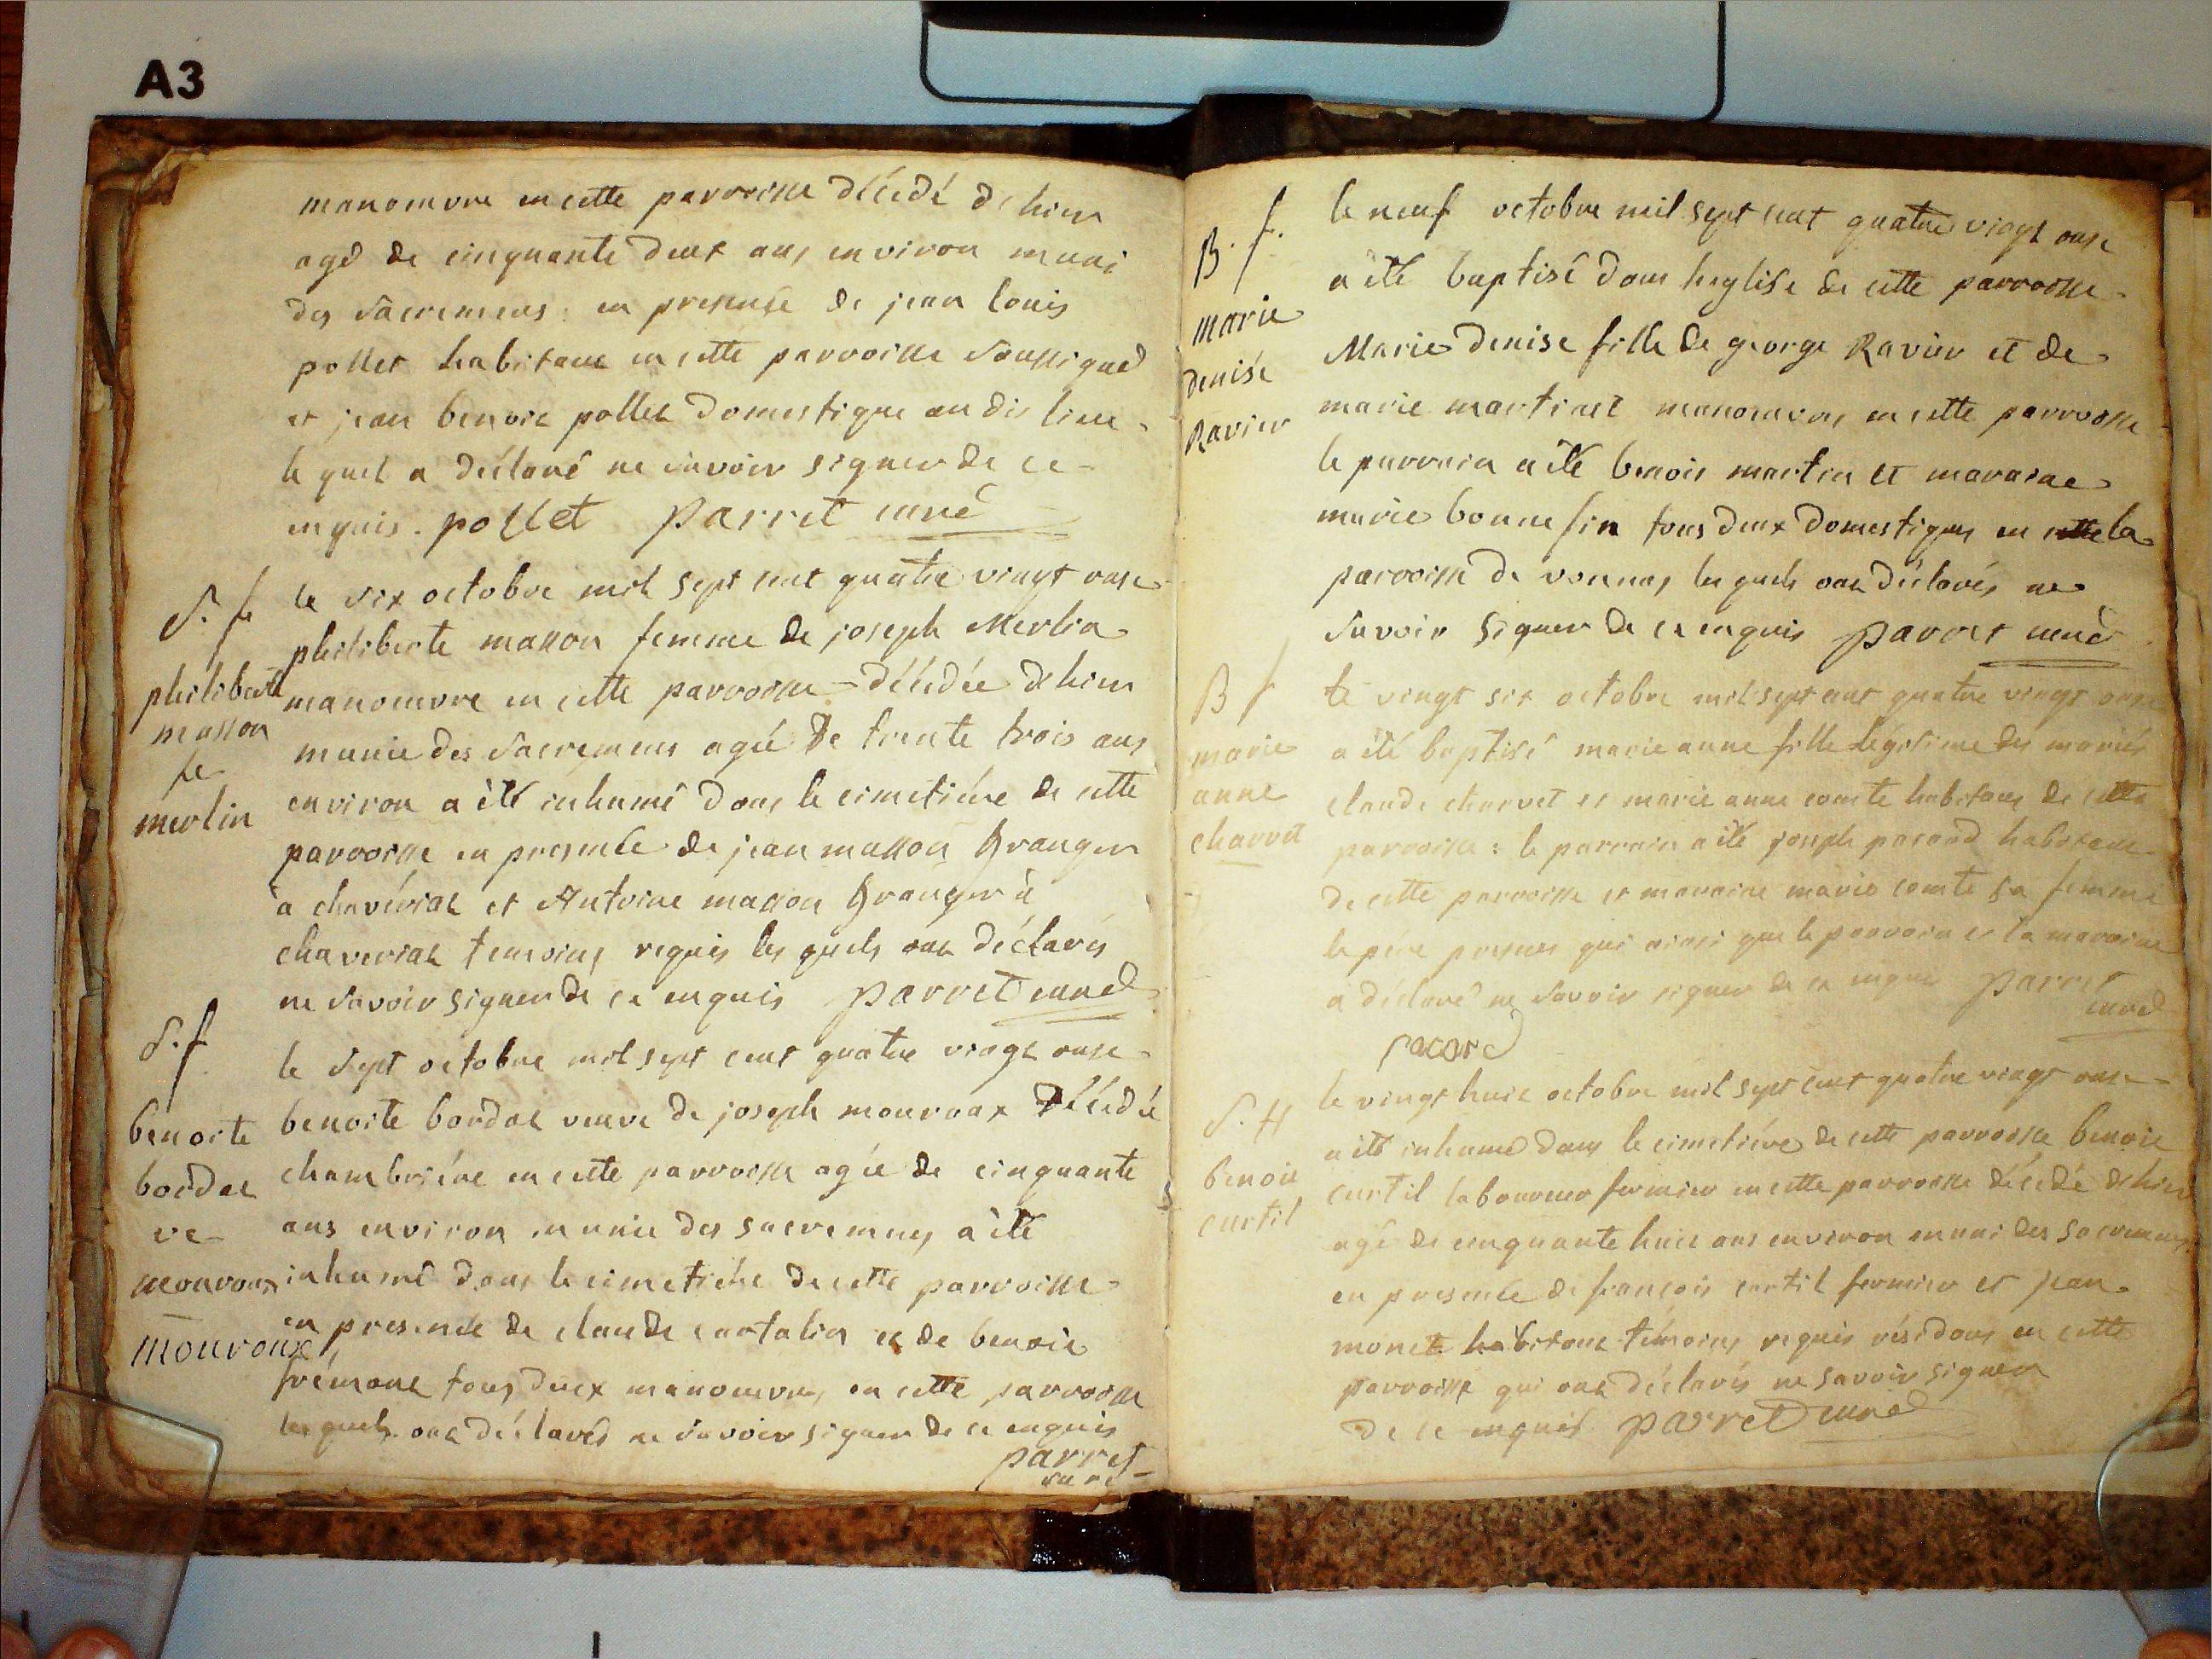 A3
manoeuvre en cette parroisse décédé d'hier
agé de cinquante deux ans environ muni
des sacremens : en presense de jean louis
pollet habitant en cette parroisse soussigné
et jean benoit pollet domestique au dit lieu
le quel a déclaré ne savoir signer de ce
enquis. pollet parret curé
S. fe
philiberte
masson
fe
merlin
le six octobre mil sept cent quatre vingt onse
philiberte masson femme de joseph Merlin
manoeuvre en cette parroisse décédée d'hier
munie des sacremens agée de trente trois ans
environ a été inhumé dans le cimetiére de cette
parroisse en presence de jean masson Granger
à chavériat et Antoine masson Granger à
chaveriat temoins requis les quels ont déclarés
ne savoir signer de ce enquis parret curé
S. f
benoite
bordat
ve
mouroux
mouroux
le sept octobre mil sept cent quatre vingt onse
benoite bordat veuve de joseph mouroux décédée
chambriére en cette parroisse agée de cinquante
ans environ munie des sacremens a été
inhumé dans le cimetiére de cette parroisse
en presence de claude curtalin et de benoit
frémont tous deux manoeuvres en cette parroisse
les quels ont déclarés ne savoir signer de ce enquis
parret
curé
B. f.
marie
denise
Ravier
le neuf octobre mil sept cent quatre vingt onse
a été baptisé dans l'eglise de cette parroisse
Marie denise fille de george Ravier et de
marie martinet manoeuvres en cette parroisse
le parrain a été benoit martin et maraine
marie bonnefin tous deux domestiques en cette la
parroisse de vonnas les quels ont déclarés ne
savoir signer de ce enquis parret curé
B f
marie
anne
charvet
le vingt six octobre mil sept cent quatre vingt onse
a été baptisé marie anne fille légitime des mariés
claude charvet et marie anne comte habitans de cette
parroisse : le parrain a été joseph pacard habitant
de cette parroisse et maraine marie comte sa femme
le pére present qui ainsi que le parrain et la maraine
a déclaré ne savoir signer de ce enquis parret
curé
pacard
S. H
benoit
curtil
le vingt huit octobre mil sept cent quatre vingt onse
a été inhumé dans le cimetiére de cette parroisse benoit
curtil laboureur fermier en cette parroisse décédé d'hier
agé de cinquante huit ans environ muni des sacremens
en presence de françois curtil fermier et jean
monet habitant témoins requis résidans en cette
parroisse qui ont déclarés ne savoir signer
de ce enquis parret curé